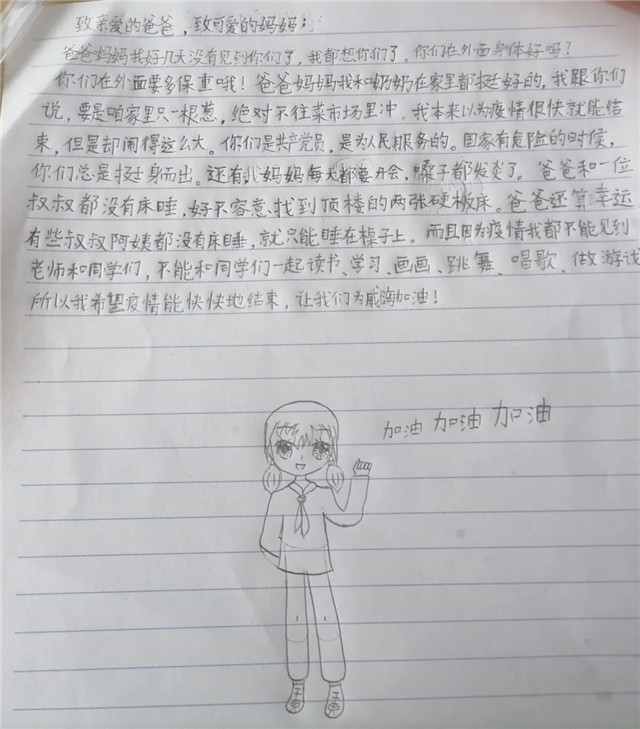 致亲爱的爸爸，致可爱的妈妈：
爸爸妈妈我好几天没有见到你们了，我都想你们了。你们在外面身体好吗？
你们在外面要多保重哦！爸爸妈妈我和奶奶在家里都挺好的，我跟你们
说，要是咱家里只一根葱，绝对不往菜市场里冲。我本来以为疫情很快就能结
束，但是却闹得这么大。你们是共产党员，是为人民服务的。国家有危险的时候，
你们总是挺身而出。还有我妈妈每天都要开会，嗓子都发炎了。爸爸和一位
叔叔都没有床睡，好不容意找到顶楼的两张硬板床。爸爸还算幸运
有些叔叔阿姨都没有床睡，就只能睡在桌子上。而且因为疫情我都不能见到
老师和同学们，不能和同学们一起读书、学习、画画、跳舞、唱歌、做游戏
所以我希望疫情能快快地结束，让我们为威海加油！
加油 加油 加油